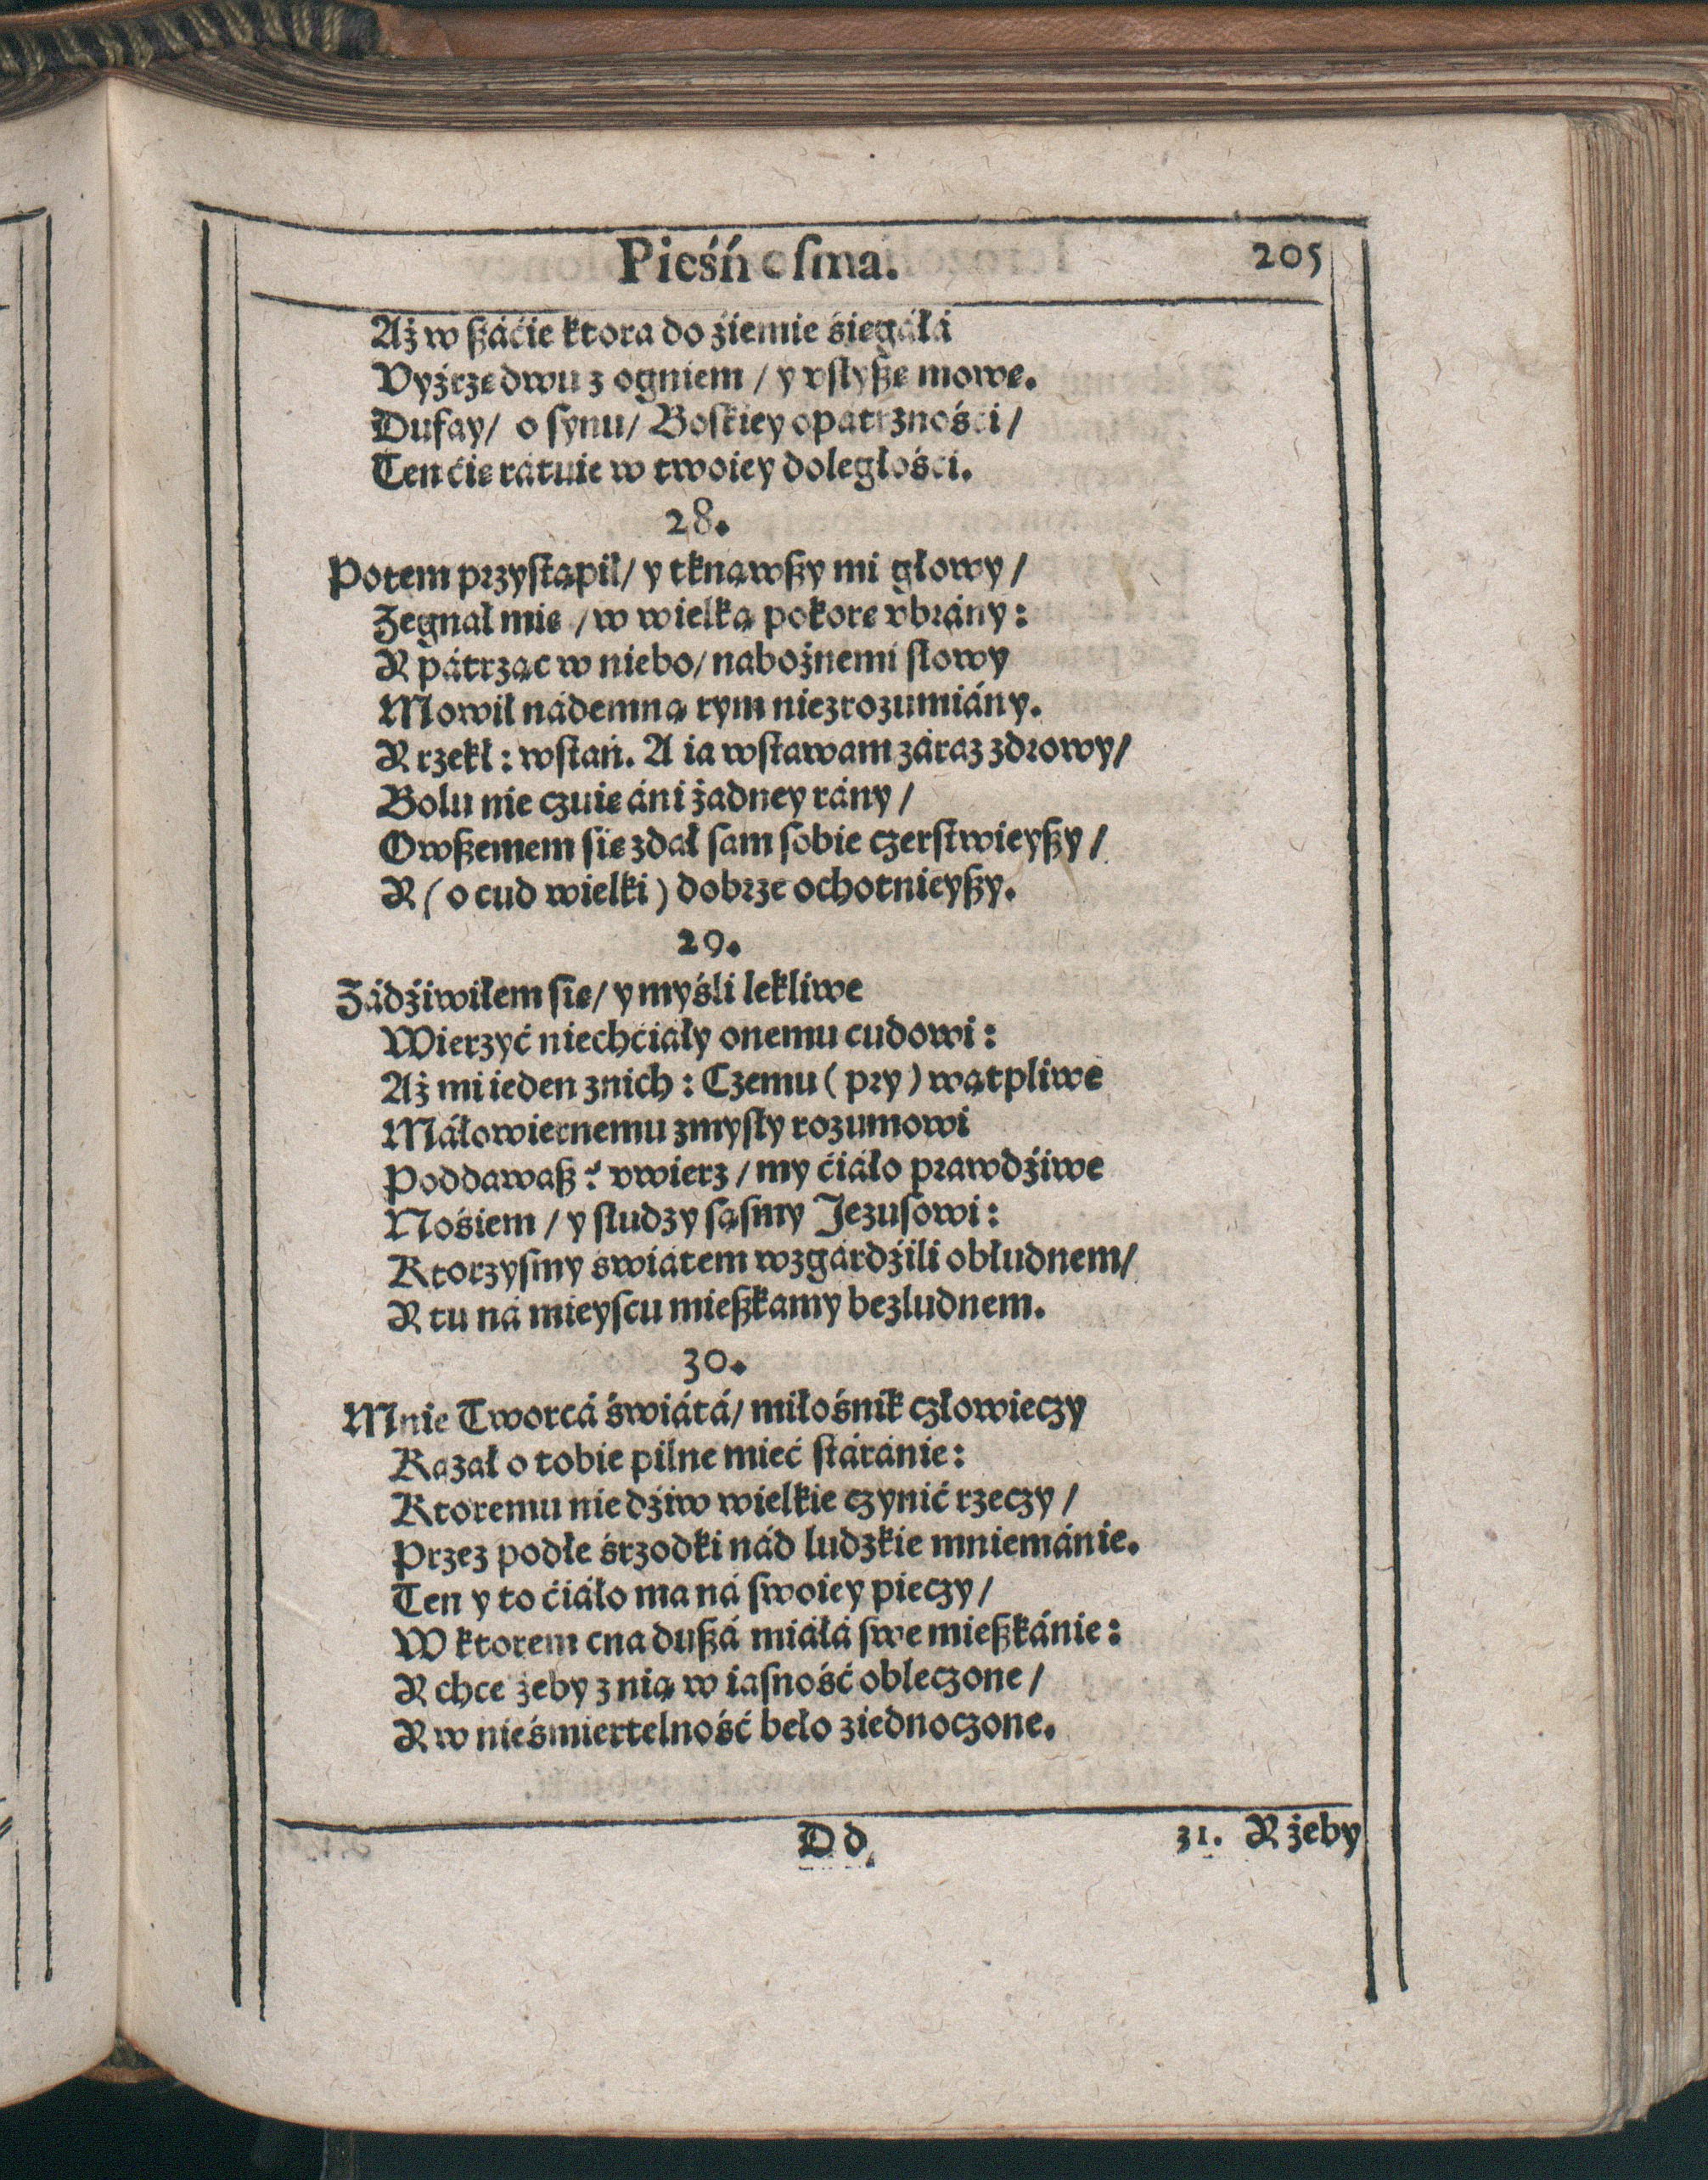 Pieśń osma. 205
Aż w ßáćie ktora do źiemie śiegáłá
Vyźrzę dwu z ogniem / y vsłyßę mowę.
Dufay / o synu / Boskiey opatrzności /
Ten ćię rátuie w twoiey doległości.
28.
Potem przystąpił / y tknąwßy mi głowy /
Zegnał mię / w wielką pokorę vbrány:
R pátrząc w niebo / nabożnemi słowy
Mowił nádemną rym niezrozumiány.
R rzekł: wstań. A ia wstawam záraz zdrowy /
Bolu nie czuię áni żadney rány /
Owßemem się zdał sam sobie czerstwieyßy /
R (o cud wielki) dobrze ochotnieyßy.
29.
Zádźiwiłem się / y myśli lekliwe
Wierzyć niechćiáły onemu cudowi:
Aż mi ieden znich: Czemu (pry) wątpliwe
Máłowiernemu zmysły rozumowi
Poddawaß? vwierz / my ćiáło prawdźiwe
Nośiem / y słudzy sąsmy Jezusowi:
Ktorzysmy światem wzgárdźili obłudnem /
R tu ná mieyscu mießkamy bezludnem.
30.
Mnie Tworcá świátá / miłośnik człowieczy
Kazał o tobie pilne mieć stáránie:
Ktoremu nie dźiw wielkie czynić rzeczy /
Przez podłe śrzodki nád ludzkie mniemánie.
Ten y to ćiáło ma ná swoiey pieczy /
W ktorem cna dußá miáłá swe mießkánie:
R chce żeby z nią w iasność obleczone /
R w nieśmiertelność beło ziednoczone.
Dd 31. R żeby